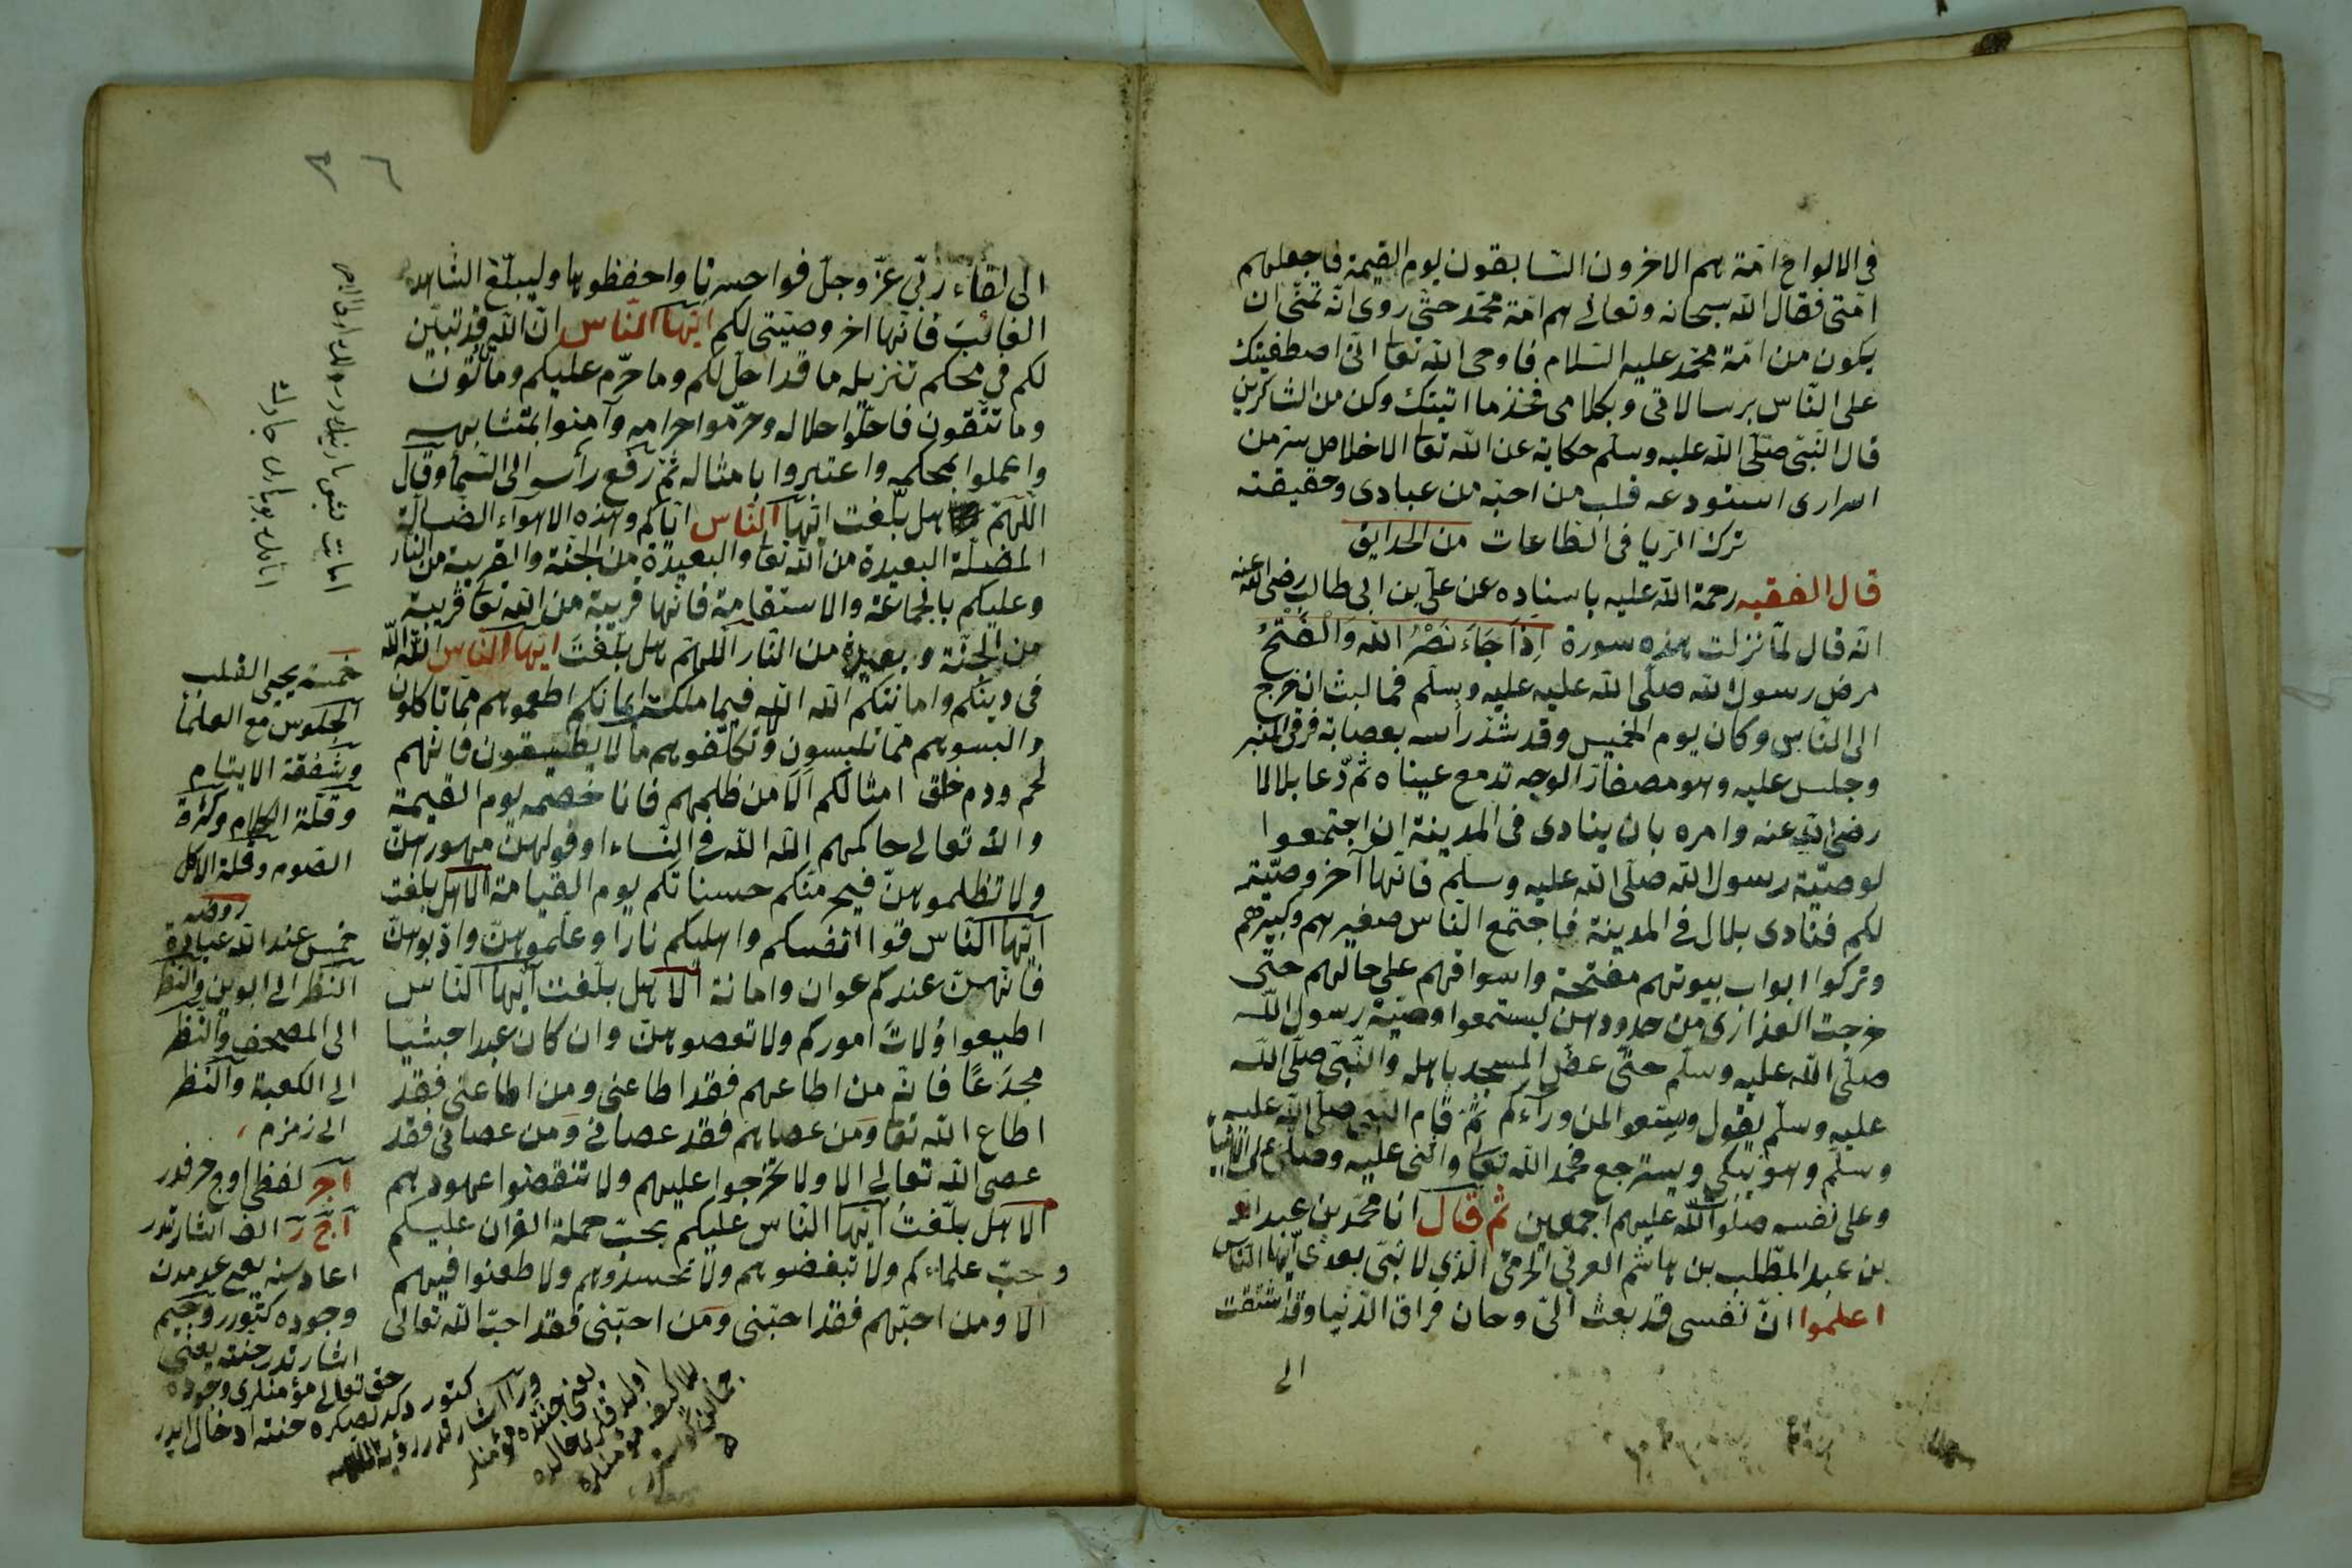 فى الالواح امّة هم الاخرون السّابقون يوم القيمة فاجعلهم
امّتى فقال اللّه سبحانه وتعالى هم امّة محمّد حتّى روى انّه تمنّى ان
يكون من امّة محمّد عليه السّلام فاوحى اللّه تعا انّى اصطفيتك
على النّاس برسالاتى وبكلامى فخذ ما اتيتك وكن من الشاكرين
قال النّبىّ صلّى اللّه عليه وسلّم حكاية عن اللّه تعا الاخلاص سرّ من
اسرارى استودعه قلب من احبّه من عبادى وحقيقته
ترك الريا فى الطاعات من الحدايق
قال الفقيه رحمة اللّه عليه باسناده عن علىّ بن ابى طالب رضى اللّه عنه
انّه قال لمّا نزلت هذه سورة اِذَا جَاءَ نَصْرُ اللّه وَالْفَتْحُ
مرض رسول اللّه صلّى اللّه عليه عليه وسلّم فما لبث ان خرج
الى النّاس وكان يوم الخميس وقد شدّ رأسه بعصابة فرقى المنبر
وجلس عليه وهو مصفارّ الوجه تدمع عيناه ثمّ دعا بلالا
رضى اللّه عنه وامره بان ينادى فى المدينة ان اجتمعوا
لوصيّة رسول اللّه صلّى اللّه عليه وسلّم فانّها آخر وصيّة
لكم فنادى بلال فى المدينة فاجتمع النّاس صغيرهم وكبيرهم
وتركوا ابواب بيوتهم مفتحة واسواقهم على حالهم حتّى
خرجت العذارى من خدودهن ليستمعوا وصيّة رسول اللّه
صلّى اللّه عليه وسلّم حتّى عضّ المسجد باهله والنّبىّ صلّى اللّه
عليه وسلّم يقول وسّعوا لمن وراءكم ثمّ قام النّبىّ صلّى اللّه عليه
وسلّم وهو يبكى ويسترجع فحمد اللّه تعا واثنى عليه وصلّى على الانبياء
وعلى نفسه صلوات اللّه عليهم اجمعين ثم قال انا محمّد بن عبد اللّه
بن عبد المطّلب بن هاشم العربىّ الحرمىّ الّذى لا نبىّ بعدى ايّها النّاس
اعلموا انّ نفسى قد بعث الىّ وحان فراق الدّنيا وقد اشتقت
الى
٣٦
الى لقاء ربّى عزّ وجلّ فواحسرتا واحفظوها وليبلّغ الشاهد
الغائب فانّها اخر وصيّتى لكم ايّها النّاس انّ اللّه قد تبيّن
لكم فى محكم تنزيله ما قد احلّ لكم وما حرّم عليكم وما تأتون
وما تتّقون فاحلّوا حلاله وحرّموا حرامه وآمنوا بمتشابهه
واعملوا بمحكمه واعتبروا بامثاله ثمّ رفع رأسه الى السّماء وقال
اللّهمّ هل بلّغت ايّها النّاس ايّاكم وهذه الاهواء الضّالّة
المضلّة البعيدة من اللّه تعا والبعيدة من الجنّة والقريبة من النّار
وعليكم بالجماعة والاستقامة فانّها قريبة من اللّه تعا قريبة
من الجنّة وبعيدة من النّار اللّهمّ هل بلّغت ايّها النّاس اللّه اللّه
فى دينكم وامانتكم اللّه اللّه فيما ملكت ايمانكم اطعموهم ممّا تأكلون
والبسوهم ممّا تلبسون وتكلّفوهم ما لا يطيقون فانّهم
لحم ودم خلق امثالكم الا من ظلمهم فانا خصمه يوم القيمة
واللّه تعالى حاكمهم اللّه اللّه فى النّساء اوفوا لهنّ مهورهنّ
ولا تظلموهنّ فيحرمنكم حسناتكم يوم القيامة الا هل بلغت
ايّها النّاس قوا انفسكم واهليكم نارا وعلّموهنّ وادّبوهنّ
فانّهنّ عندكم عوان وامانة الا هل بلّغت ايّها النّاس
اطيعوا اولات اموركم ولا تعصوهنّ وان كان عبدا حبشيّا
مجدّعًا فانّه من اطاعهم فقد اطاعنى ومن اطاعنى فقد
اطاع اللّه تعا ومن عصاهم فقد عصانى ومن عصانى فقد
عصى اللّه تعالى الا ولا تخرجوا عليهم ولا تنقضوا عهودهم
الا هل بلّغت ايّها النّاس عليكم بحبّ حملة القران عليكم
وحبّ علماءكم ولا تبغضوهم ولا تحسدوهم ولا طعنوا فيهم
الا ومن احبّهم فقد احبّنى ومن احبّنى فقد احبّ اللّه تعالى
خمسة يحيى القلب
الجلوس مع العلماء
وشفقة الايتام
وقلّة الكلام وكثرة
الصّوم وقلة الاكل
روضه
خمس عند اللّه عبادة
النّظر الى ابوين والنّظر
الى المصحف والنّظر
الى الكعبة والنّظر
الى زمزم
آجر لفظى اوچ حرفدر
آ ج ر الف اشارتدر
وجوده كتورر وجيم
اشارتدر جنته يعنى
حق تعالى مؤمنلرى وجوده
كتوردكدنصكره جنته ادخال ايدر
ورا اشارتدر رؤية
يعنى جنتده مؤمنلر